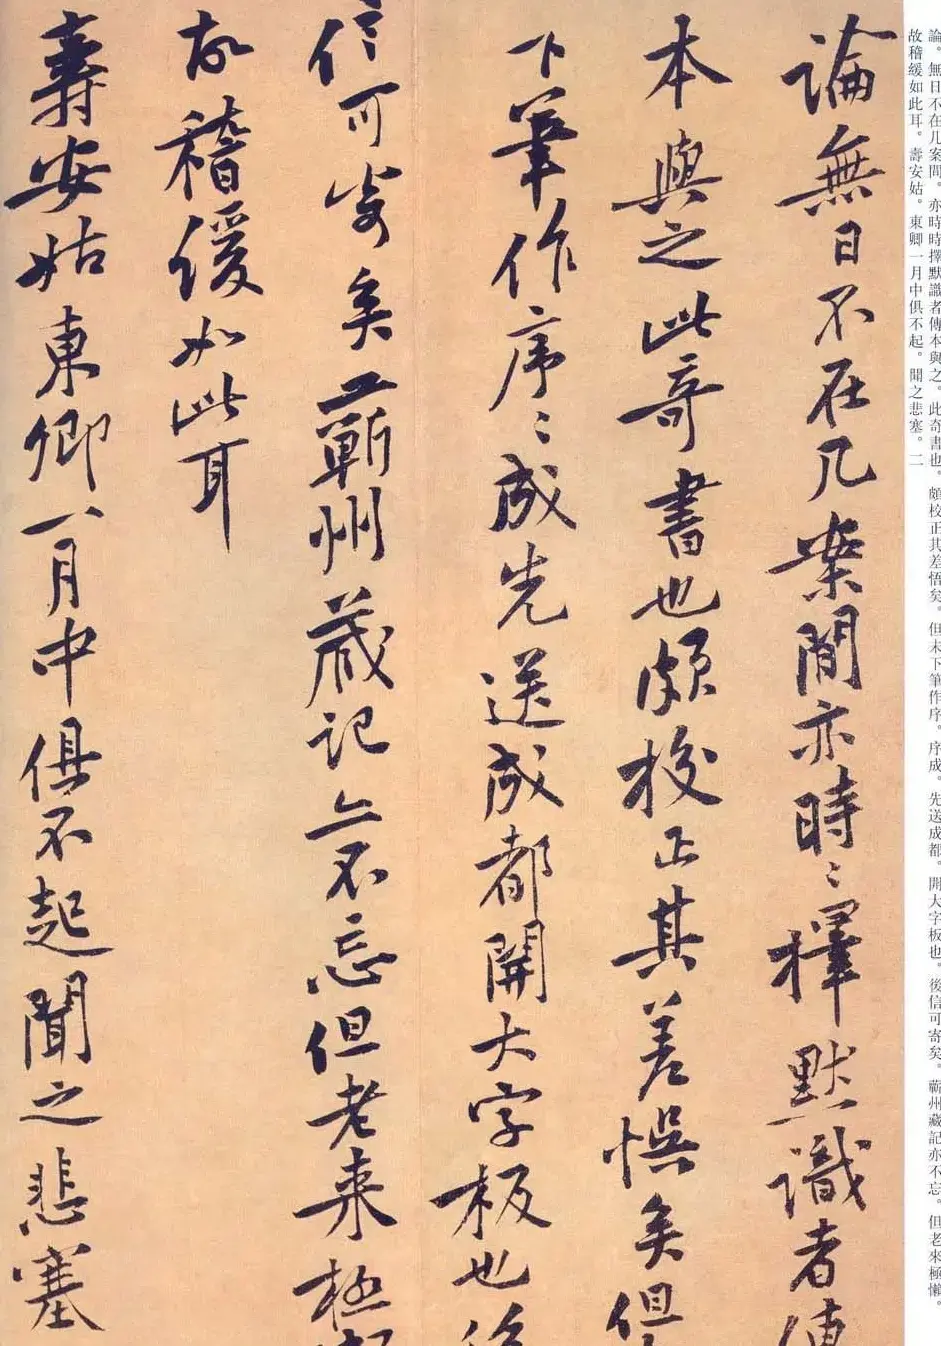 論。無日不在几案間。亦時時擇默識者傳本與之。此奇書也。頗校正其差悟矣。但未下筆作序。序成。先送成都。開大字板也。後信可寄矣。蘄州藏記亦不忘。但老來極懶。
故稽緩如此耳。壽安姑。東卿一月中俱不起。聞之悲塞。二
論無日不在几案間亦時〻擇默識者傳
本與之此奇書也頗校正其差悞矣但
下筆作序〻成先送成都開大字板也後
信可寄矣蘄州藏記亦不忘但老來極
故稽緩如此耳
壽安姑東卿一月中俱不起聞之悲塞